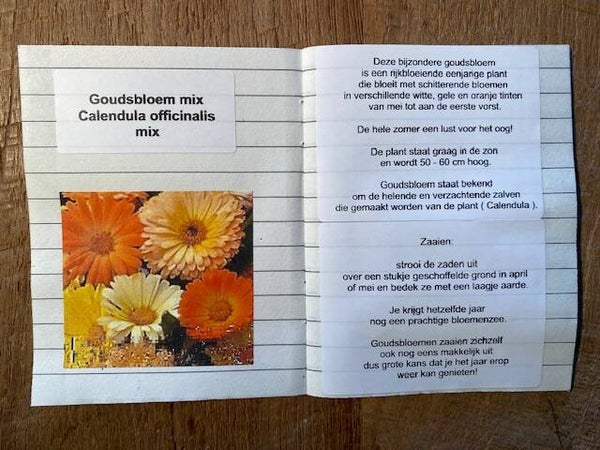 Goudsbloem mix
Calendula officinalis
mix
Deze bijzondere goudsbloem
is een rijkbloeiende eenjarige plant
die bloeit met schitterende bloemen
in verschillende witte, gele en oranje tinten
van mei tot aan de eerste vorst.
De hele zomer een lust voor het oog!
De plant staat graag in de zon
en wordt 50 - 60 cm hoog.
Goudsbloem staat bekend
om de helende en verzachtende zalven
die gemaakt worden van de plant ( Calendula ).
Zaaien:
strooi de zaden uit
over een stukje geschoffelde grond in april
of mei en bedek ze met een laagje aarde.
Je krijgt hetzelfde jaar
nog een prachtige bloemenzee.
Goudsbloemen zaaien zichzelf
ook nog eens makkelijk uit
dus grote kans dat je het jaar erop
weer kan genieten!